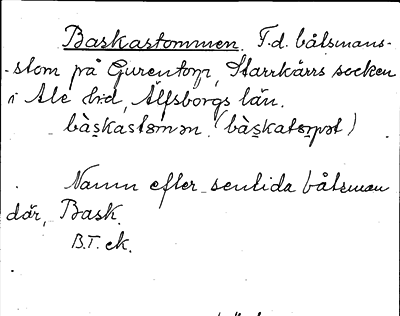 Baskastommen. F.d. båtsmans-
-stom på Gurentorp, Starrkärrs socken
i Ale hd, Älfsborgs län.
bàskastomən. (bàskatorpət)
Namn efter sentida båtsman
där, Bask.
B.T. ek.